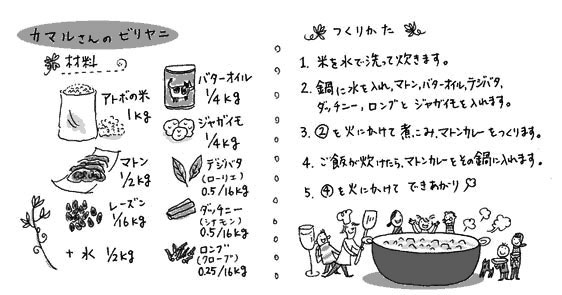 カマルさんのビリヤニ
材料
アトポの米
1kg
バターオイル
1/4kg
ジャガイモ
1/4kg
マトン
1/2kg
テジパタ
(ローリエ)
0.5/16kg
レーズン
1/16kg
ダッチニー
(シナモン)
0.5/16kg
+水 1/2kg
ロング
(クローブ)
0.25/16kg
つくりかた
1. 米を水で洗って炊きます。
2. 鍋に水を入れ、マトン、バターオイル、テジパタ、
ダッチニー、ロングとジャガイモを入れます。
3. ②を火にかけて煮こみ、マトンカレーをつくります。
4. ご飯が炊けたら、マトンカレーをその鍋に入れます。
5. ④を火にかけて できあがり